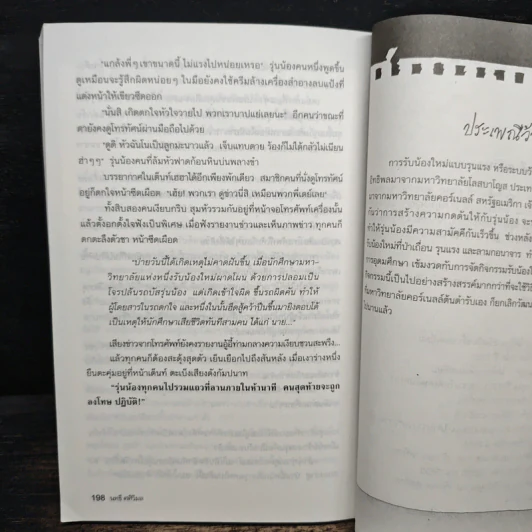 "แกล้งพี่ๆ เขาขนาดนี้ ไม่แรงไปหน่อยเหรอ" รุ่นน้องคนหนึ่งพูดขึ้น
ดูเหมือนจะรู้สึกผิดหน่อยๆ ในมือยังคงใช้ครีมล้างเครื่องสำอางลบแป้งที่
แต่งหน้าให้เขียวซีดออก
"นั่นสิ เกิดตกใจหัวใจวายไป พวกเราบาปแย่เลยนะ" อีกคนว่าขณะที่
ตายังคงดูโทรทัศน์ผ่านมือถือไปด้วย
"ดูดิ หัวฉันโนเป็นลูกมะนาวแล้ว เจ็บแทบตาย ร้องก็ไม่ได้กลัวไม่เนียน
ฮ่าๆๆ" รุ่นน้องคนที่ล้มหัวฟาดก้อนหินบ่นพลางขำ
บรรยากาศในเต็นท์เฮฮาได้อีกเพียงพักเดียว สมาชิกคนที่นั่งดูโทรทัศน์
อยู่ก็ตกใจหน้าซีดเผือด "เฮ้ย! พวกเรา ดูข่าวนี่สิ เหมือนพวกพี่เดย์เลย"
ทั้งสิบสองคนเงียบกริบ สุมหัวรวมกันอยู่ที่หน้าจอโทรศัพท์เครื่องนั้น
แล้วตั้งอกตั้งใจฟังเป็นพิเศษ เมื่อฟังรายงานข่าวและเห็นภาพข่าว ทุกคนก็
ตกตะลึงตัวชา หน้าซีดเผือด
"บ่ายวันนี้ได้เกิดเหตุไม่คาดฝันขึ้น เมื่อนักศึกษามหา-
วิทยาลัยแห่งหนึ่งรับน้องใหม่ผาดโผน ด้วยการปลอมเป็น
โจรปล้นรถบัสรุ่นน้อง แต่เกิดเข้าใจผิด ขึ้นรถผิดคัน ทำให้
ผู้โดยสารในรถตกใจ และหนึ่งในนั้นฮึดสู้คว้าปืนขึ้นมายิงตอบโต้
เป็นเหตุให้นักศึกษาเสียชีวิตทันทีสามคน ได้แก่ นาย..."
เสียงข่าวจากโทรศัพท์ยังคงรายงานอยู่ท่ามกลางความเงียบชวนสะพรึง...
แล้วทุกคนก็ต้องสะดุ้งสุดตัว เย็นเยือกไปถึงสันหลัง เมื่อเงาร่างหนึ่ง
ยืนตะคุ่มอยู่ที่หน้าเต็นท์ ตะเบ็งเสียงดังกัมปนาท
"รุ่นน้องทุกคนไปรวมแถวที่ลานภายในห้านาที คนสุดท้ายจะถูก
ลงโทษ ปฏิบัติ!"
198
ประเพณีรั
การรับน้องใหม่แบบรุนแรง หรือระบบว้
ทธิพลมาจากมหาวิทยาลัยโลสบาโญส ประเท
าจากมหาวิทยาลัยคอร์เนลล์ สหรัฐอเมริกา เจ้
กันว่าการสร้างความกดดันให้กับรุ่นน้อง จะ
ทำให้รุ่นน้องมีความสามัคคีกันเร็วขึ้น ช่วงหลัง
รับน้องใหม่ที่ป่าเถื่อน รุนแรง และลามกอนาจาร ทำ
การอุดมศึกษา เข้มงวดกับการจัดกิจกรรมรับน้องให
กิจกรรมนี้เป็นไปอย่างสร้างสรรค์มากกว่าที่จะใช้วิธี
มหาวิทยาลัยคอร์เนลล์ต้นตำรับเอง ก็ยกเลิกวัฒน
นานแล้ว